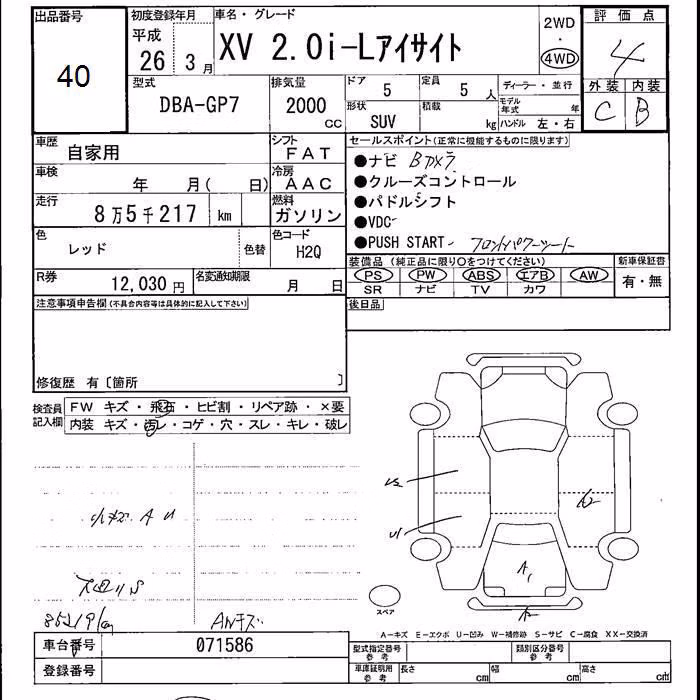 出品番号
40
初度登録年月
平成
26 3月
車名・グレード
XV 2.0i-Lアイサイト
2WD
・
4WD
評価点
4
外装 内装
C B
型式
DBA-GP7
排気量
2000
cc
ドア
5
定員
5 人
形状
SUV
積載
kg
ディーラー・並行
モデル年式 年
ハンドル 左・右
車歴
自家用
シフト
FAT
車検
年 月( 日)
冷房
AAC
走行
8万5千217 km
燃料
ガソリン
色
レッド
色替
色コード
H2Q
R券
12,030円
名変通知期限
月 日
セールスポイント(正常に機能するものに限ります)
●ナビ Bカメラ
●クルーズコントロール
●パドルシフト
●VDC
●PUSH START フロントパワーシート
装備品 (純正品に限り○をつけてください)
PS PW ABS エアB AW
SR ナビ TV カワ
新車保証書
有・無
後日品
注意事項申告欄(不具合内容等は具体的に記入して下さい)
修復歴 有〔箇所 〕
検査員
記入欄
FW キズ・飛石・ヒビ割・リペア跡・×要
内装 キズ・汚レ・コゲ・穴・スレ・キレ・破レ
小キズ A U
下回りS
85219km
ANキズ
U2
U1
A2
A1
スペア
A-キズ E-エクボ U-凹み W-補修跡 S-サビ C-腐食 XX-交換済
車台番号
071586
登録番号
型式指定番号
参考
類別区分番号
参考
車庫証明用
参考
長さ cm
幅 cm
高さ cm